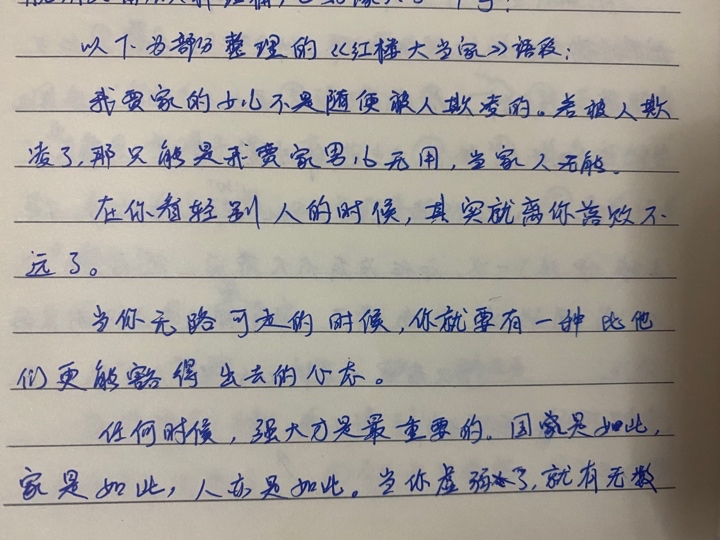 以下为部分整理的《红楼大当家》语段：
我贾家的女儿不是随便被人欺凌的。若被人欺
凌了，那只能是我贾家男儿无用，当家人无能。
在你看轻别人的时候，其实就离你落败不
远了。
当你无路可走的时候，你就要有一种比他
们更能豁得出去的心态。
任何时候，强大才是最重要的。国家是如此，
家是如此，人亦是如此。当你虚弱了，就有无数